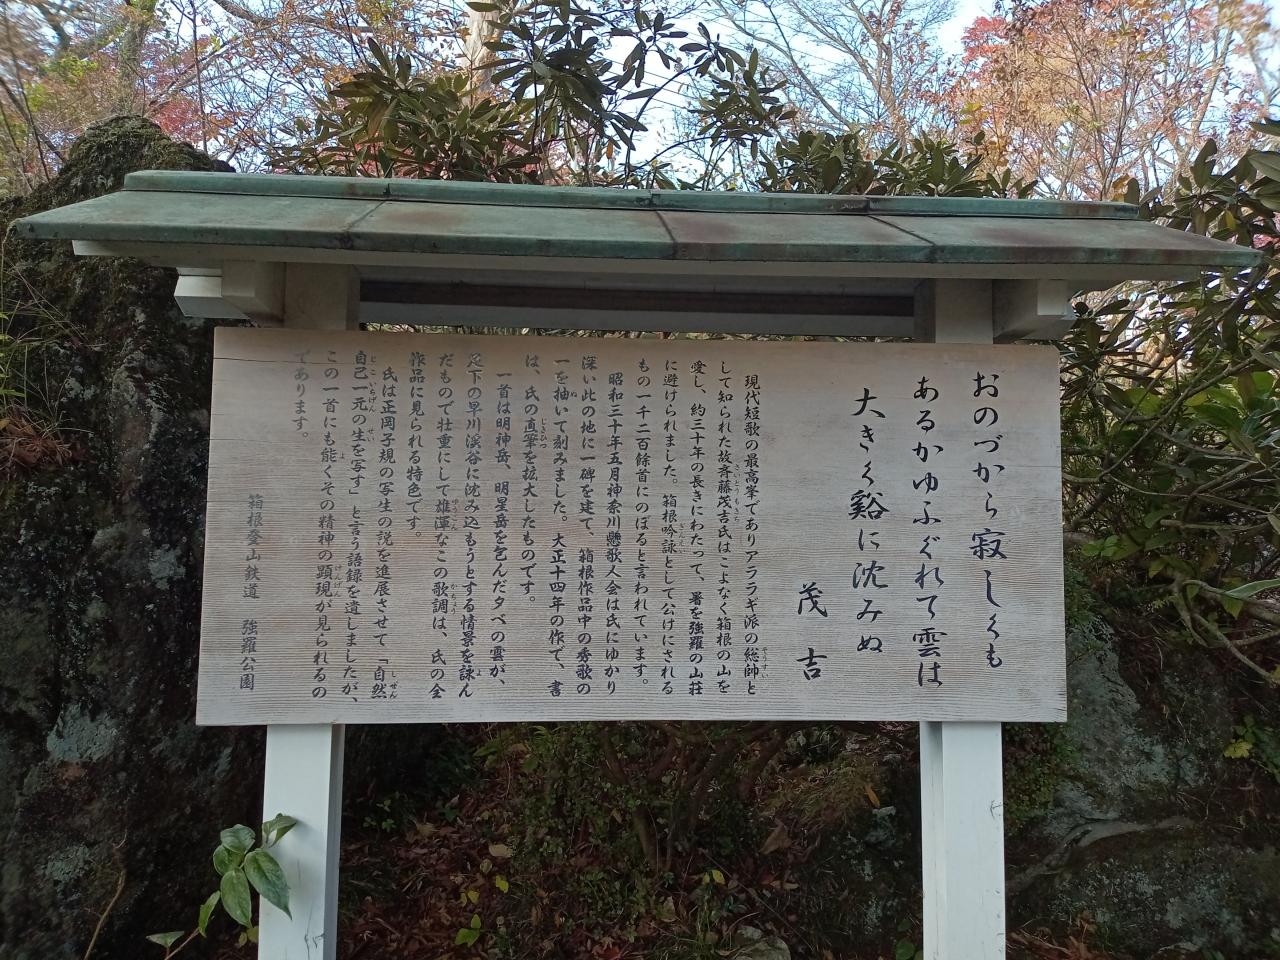 おのづから寂しくも
あるかゆふぐれて雲は
大きく谿に沈みぬ
茂吉
現代短歌の最高峯でありアララギ派の総帥と
して知られた故斉藤茂吉氏はこよなく箱根の山を
愛し、約三十年の長きにわたって、暑を強羅の山荘
に避けられました。箱根吟詠として公けにされる
もの一千二百餘首にのぼると言われています。
昭和三十年五月神奈川懸歌人会は氏にゆかり
深い此の地に一碑を建て、箱根作品中の秀歌の
一を抽いて刻みました。大正十四年の作で、書
は、氏の直筆を拡大したものです。
一首は明神岳、明星岳を包んだ夕べの雲が、
足下の早川渓谷に沈み込もうとする情景を詠ん
だもので壮重にして雄渾なこの歌調は、氏の全
作品に見られる特色です。
氏は正岡子規の写生の説を進展させて「自然
自己一元の生を写す」と言う語録を遺しましたが、
この一首にも能くその精神の顕現が見られるの
であります。
箱根登山鉄道 強羅公園